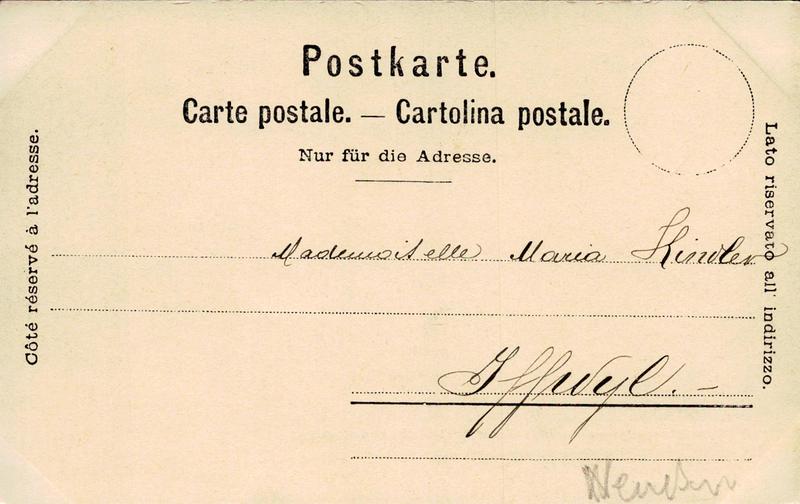 Postkarte.
Carte postale. — Cartolina postale.
Nur für die Adresse.
Côté réservé à l'adresse.
Lato riservato all' indirizzo.
Mademoiselle Maria Kindler
Iffwyl. –